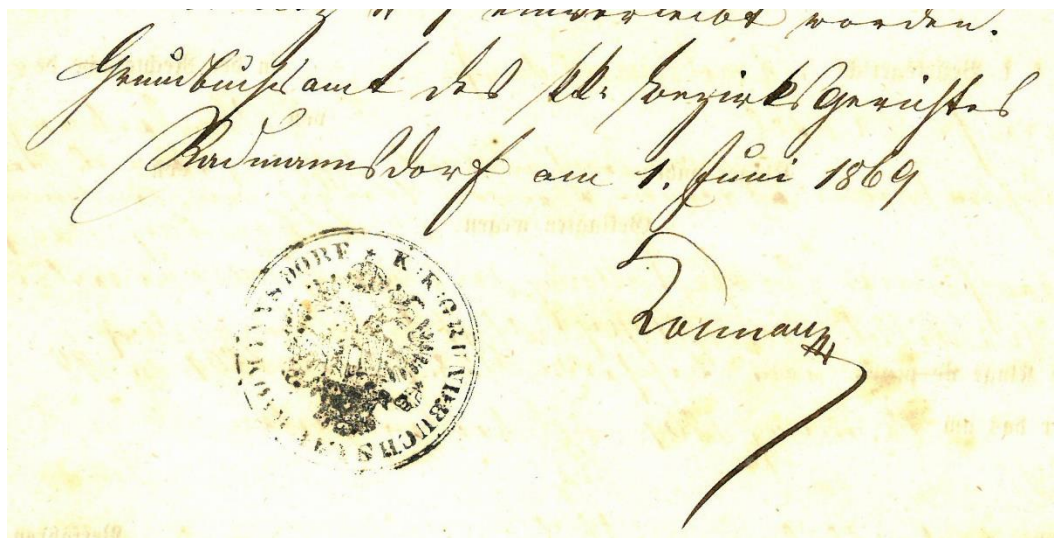 einverleibt worden.
Grundbuchsamt des kk. Bezirksgerichtes
Radmannsdorf am 1. Juni 1869
K. K. GRUNDBUCHSAMT RADMANNSDORF